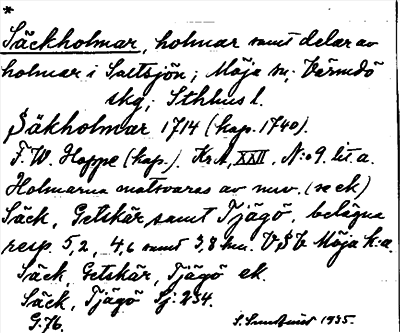 *
Säckholmar, holmar samt delar av
holmar i Saltsjön; Möja sn; Värmdö
skg; Sthlms l.
Säkholmar 1714 (kop. 1740).
F. W. Hoppe (kop.). Kr A, XXII, N:o 9. lit. a.
Holmarna motsvaras av nuv. (se ek)
Säck, Getskär samt Tjägö, belägna
resp. 5,2, 4,6 samt 3,8 km. VSV Möja k:a.
Säck, Getskär, Tjägö ek.
Säck, Tjägö Sj. 234.
G. 76. S. 1935.